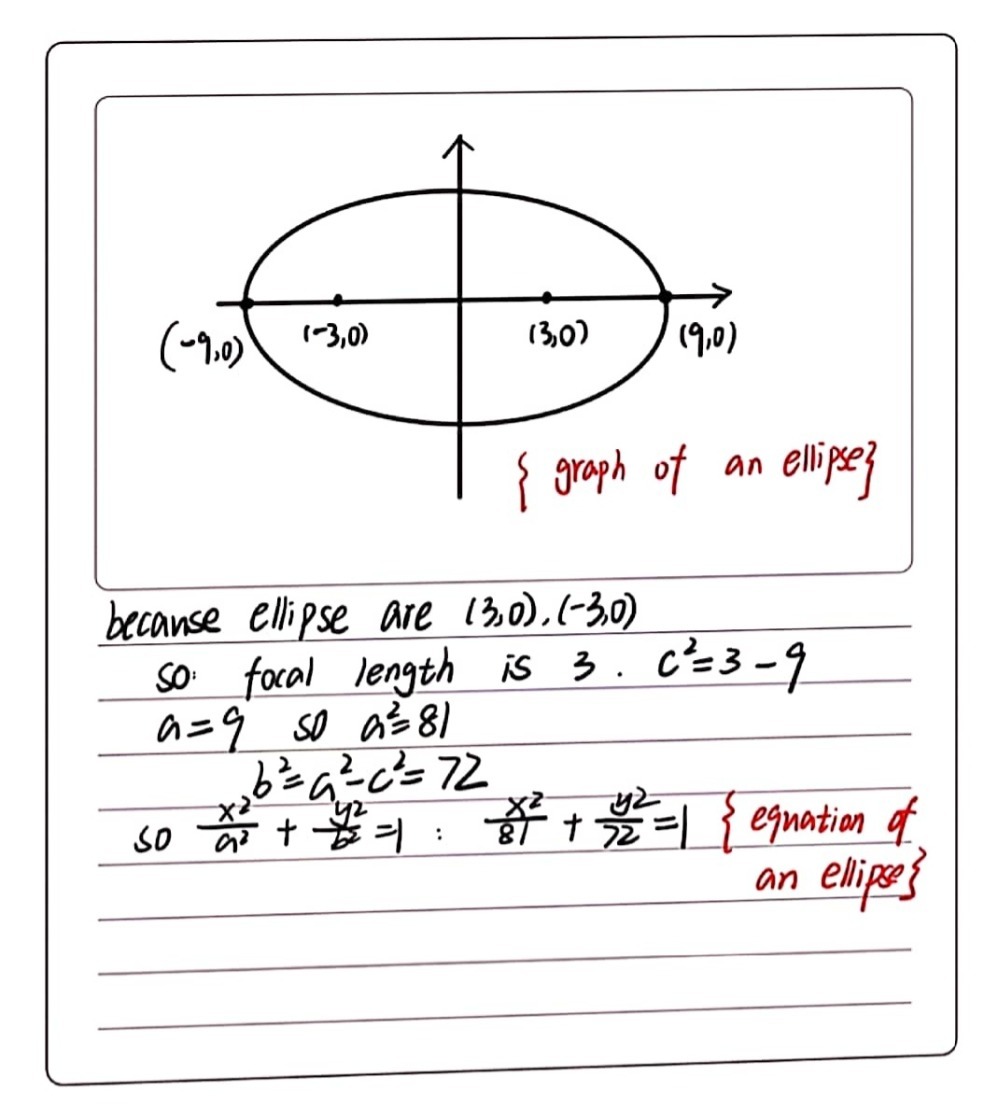 (-9,0) (-3,0) (3,0) (9,0)
{ graph of an ellipse}
becanse ellipse are (3,0).(-3,0)
so: focal length is 3 . c²=3-9
a=9 so a²=81
b²=a²-c²=72
so x²/a² + y²/b² =1 : x²/81 + y²/72 =1 { eqnation of
an ellipse}